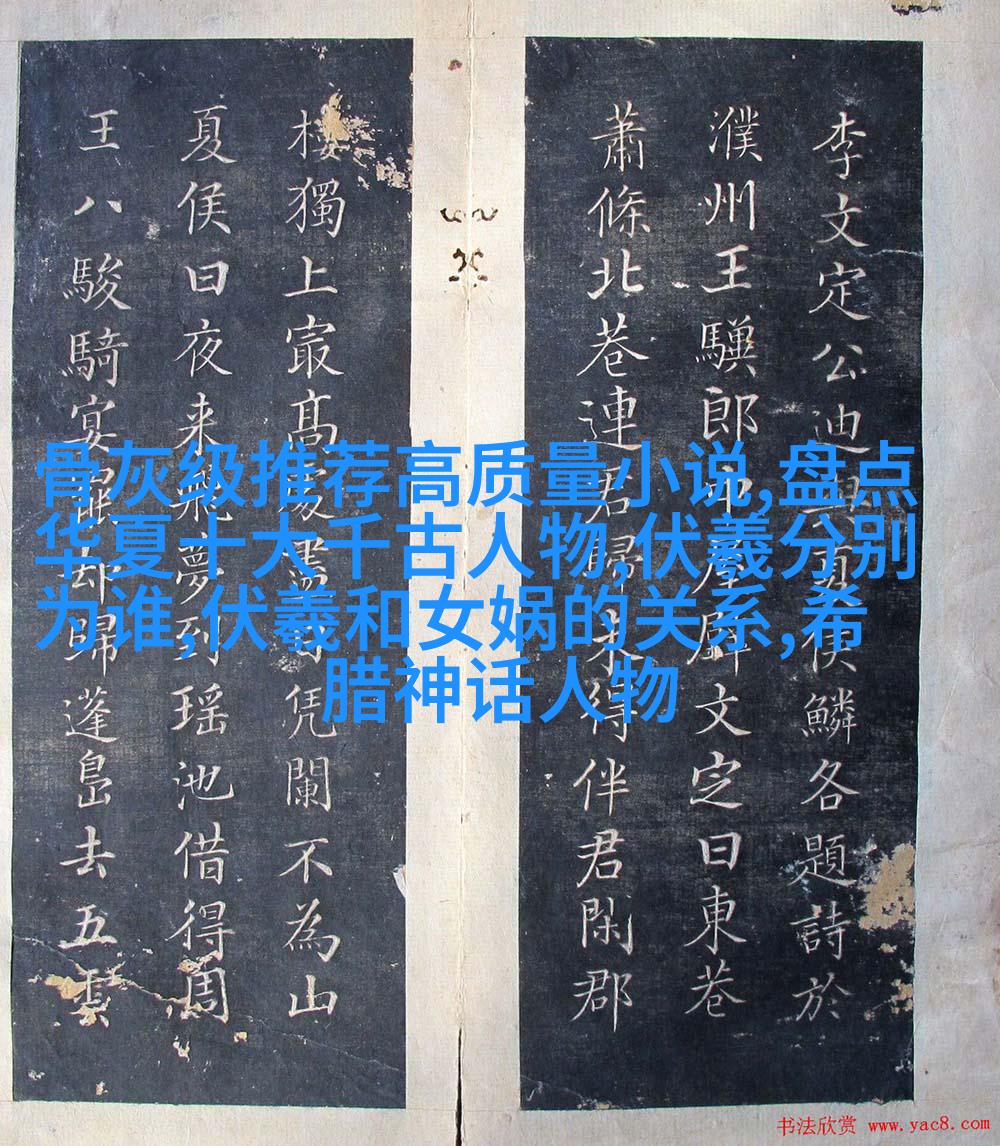 李文定公迪與夏侯鱗各題詩於
濮州王驥郎中文定曰東巷
蕭條北巷連君歸来得伴君閑郡
樓獨上㝡髙處盡日凭闌不為山
夏侯曰夜来飛夢到瑶池借得周
王八駿騎宴罷却歸蓬島去五雲
骨灰级推荐高质量小说,盘点
华夏十大千古人物,伏羲分别
为谁,伏羲和女娲的关系,希
腊神话人物
书法欣赏 www.yac8.com